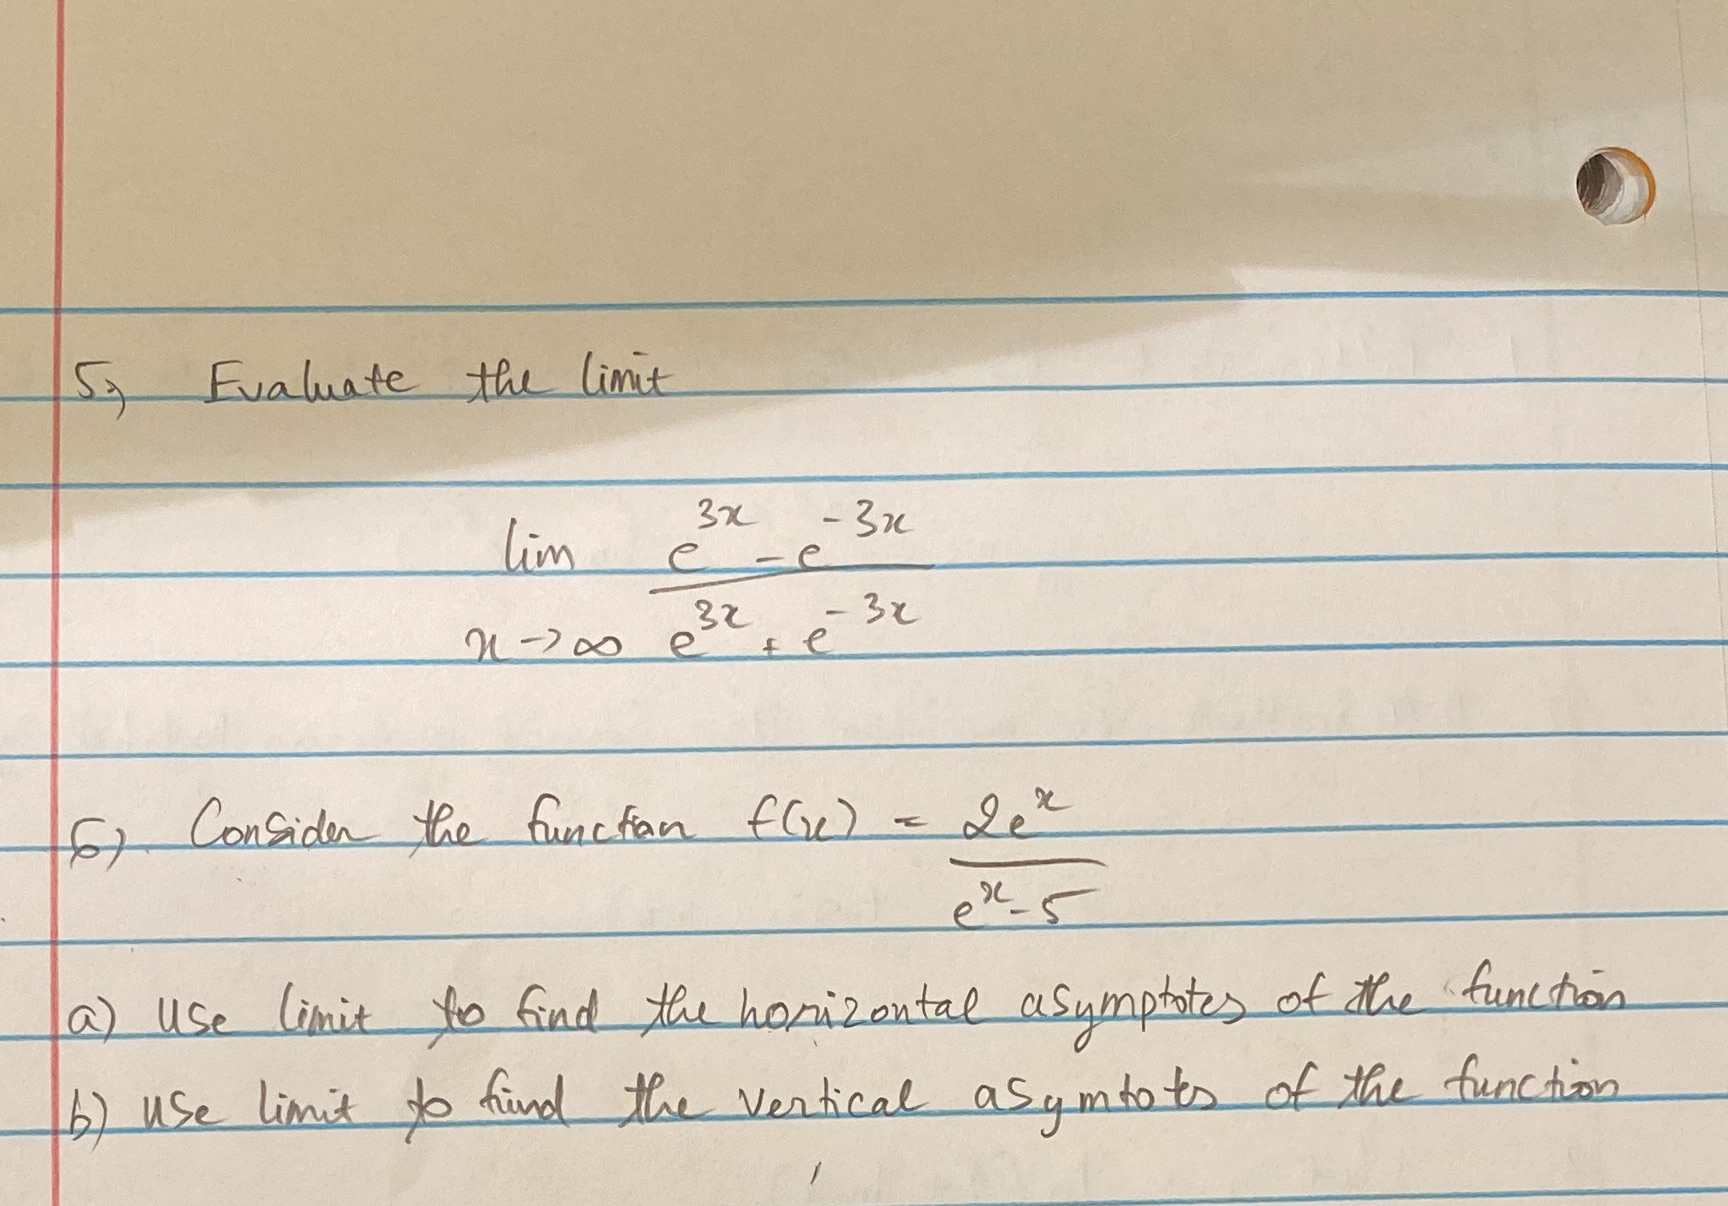 5) Evaluate the limit
lim e^{3x} - e^{-3x}
x→∞ e^{3x} + e^{-3x}
6). Consider the function f(x) = 2e^x
e^x - 5
a) Use limit to find the horizontal asymptotes of the function
b) use limit to find the vertical asymtots of the function